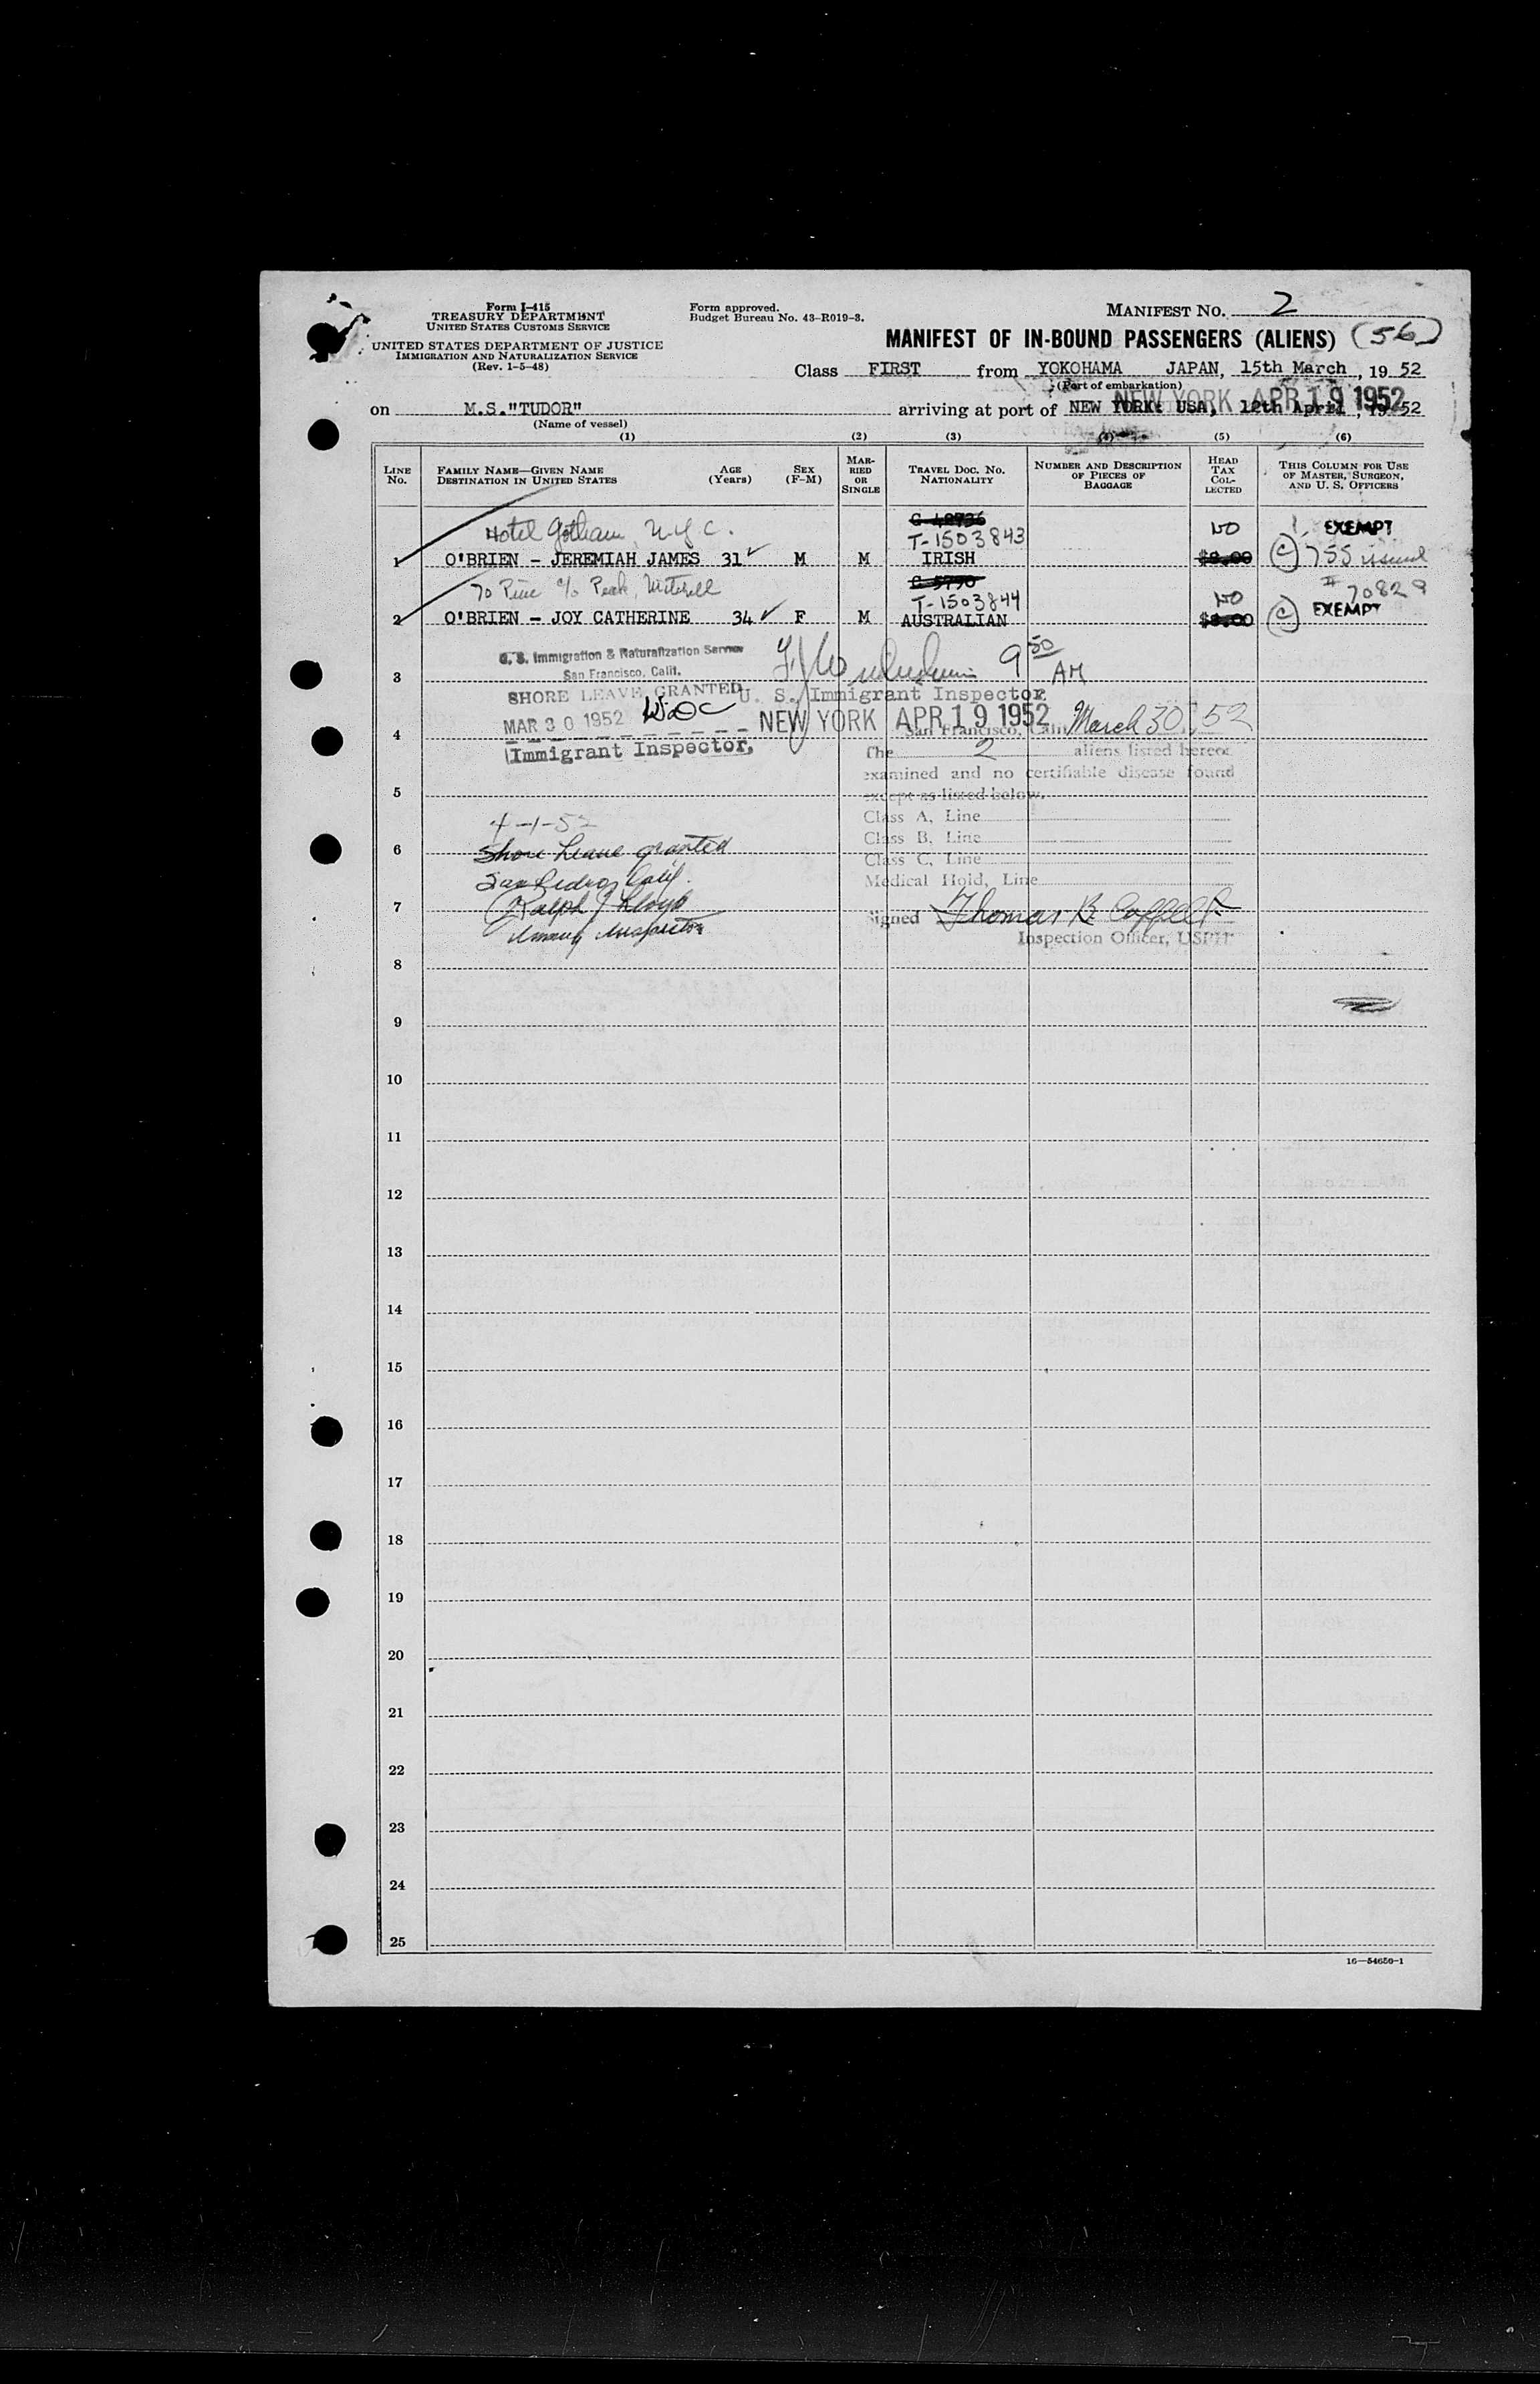 Form I-415
TREASURY DEPARTMENT
UNITED STATES CUSTOMS SERVICE
UNITED STATES DEPARTMENT OF JUSTICE
IMMIGRATION AND NATURALIZATION SERVICE
(Rev. 1-5-48)
Form approved.
Budget Bureau No. 43-R019-3.
MANIFEST NO. 2
MANIFEST OF IN-BOUND PASSENGERS (ALIENS) (56)
Class FIRST from YOKOHAMA JAPAN, 15th March, 19 52
(Port of embarkation)
NEW YORK APR 19 1952
on M.S."TUDOR" arriving at port of NEW YORK: USA, 12th April, 1952
(Name of vessel)
(1) (2) (3) (4) (5) (6)
LINE NO.
FAMILY NAME—GIVEN NAME
DESTINATION IN UNITED STATES
AGE (Years)
SEX (F-M)
MARRIED OR SINGLE
TRAVEL DOC. NO.
NATIONALITY
NUMBER AND DESCRIPTION OF PIECES OF BAGGAGE
HEAD TAX COLLECTED
THIS COLUMN FOR USE OF MASTER, SURGEON, AND U. S. OFFICERS
Hotel Gotham, N.Y.C. T-1503843 NO EXEMPT
1 O'BRIEN - JEREMIAH JAMES 31 M M IRISH $8.00 (c) 755 issued
70 Pine c/o Peak, Mitchell T-1503844 NO # 70829
2 O'BRIEN - JOY CATHERINE 34 F M AUSTRALIAN $8.00 (c) EXEMPT
U. S. Immigration & Naturalization Service
San Francisco, Calif.
SHORE LEAVE GRANTED
MAR 30 1952
Immigrant Inspector,
9 50 AM
U. S. Immigrant Inspector
NEW YORK APR 19 1952
San Francisco, Calif. March 30, 52
The 2 aliens listed hereon
examined and no certifiable disease found
except as listed below.
Class A, Line
Class B, Line
Class C, Line
Medical Hold, Line
Signed Thomas B
Inspection Officer, USPHS
4-1-52
Shore Leave granted
San Pedro, Calif.
Ralph J Lloyd
Immig Inspector
3
4
5
6
7
8
9
10
11
12
13
14
15
16
17
18
19
20
21
22
23
24
25
16—54650-1